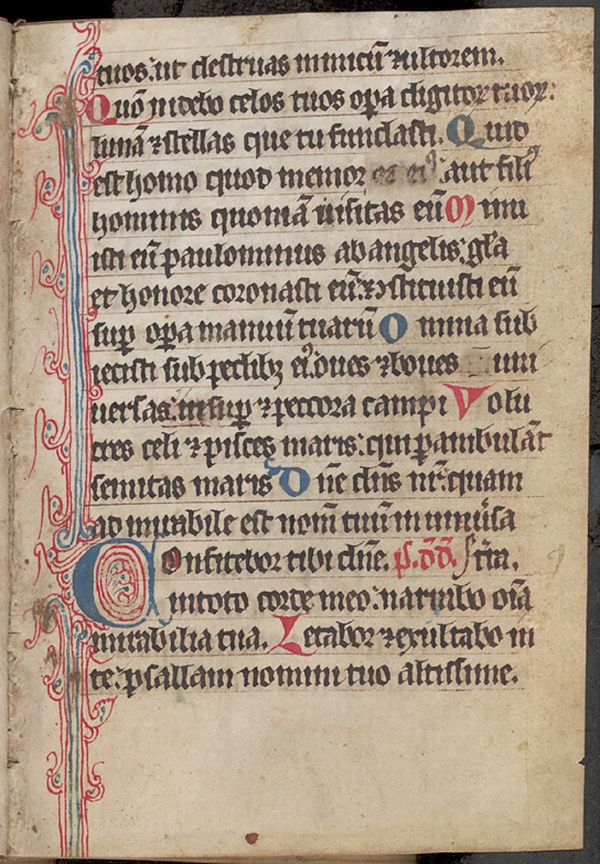 tuos: ut destruas inimicū ⁊ ultorem.
Quōm uidebo celos tuos oꝑa digitoꝝ tuoꝝ:
lunā ⁊ stellas que tu fundasti. Quid
est homo quod memor es eiꝰ: aut filiꝰ
hominis quoniā uisitas eū Minu
isti eū paulominus ab angelis: gl̄a
et honore coronasti eū: ⁊ ꝯstituisti eū
suꝑ oꝑa manuū tuarū Omnia sub
iecisti sub pedibꝫ eiꝰ: oues ⁊ boues uni
uersas: insuꝑ ⁊ peccora campi Volu
cres celi ⁊ pisces maris: qui ꝑambulāt
semitas maris Dn̄e dn̄s nr̄: quam
admirabile est nom̄ tuū in uniu͛sa
Confitebor tibi dn̄e. ps. dd̄. t̄ra.
in toto corde meo: narrabo oīa
mirabilia tua. Letabor ⁊ exultabo in
te: psallam nomini tuo altissime.